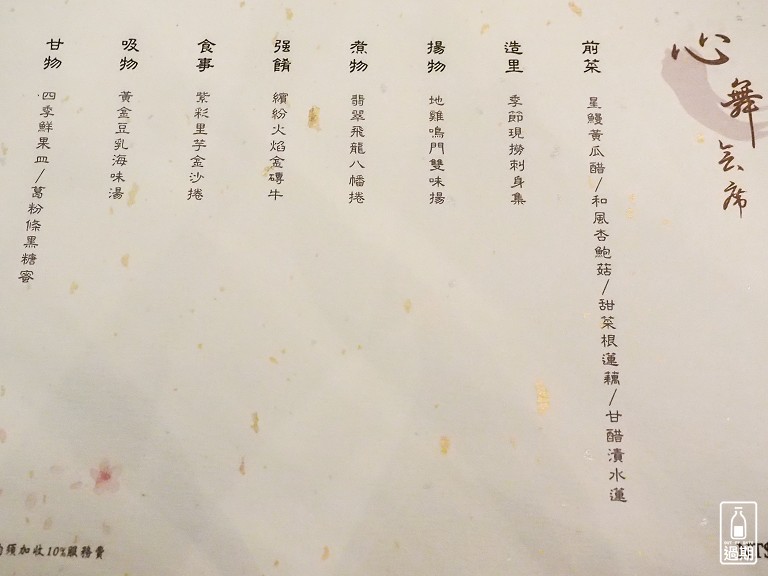 心舞会席
前菜
星鰻黃瓜醋/和風杏鮑菇/甜菜根蓮藕/甘醋漬水蓮
造里
季節現撈刺身集
揚物
地雞鳴門雙味揚
煮物
翡翠飛龍八幡捲
强餚
繽紛火焰金磚牛
食事
紫彩里芋金沙捲
吸物
黃金豆乳海味湯
甘物
四季鮮果皿/葛粉條黑糖蜜
須加收10%服務費
過期